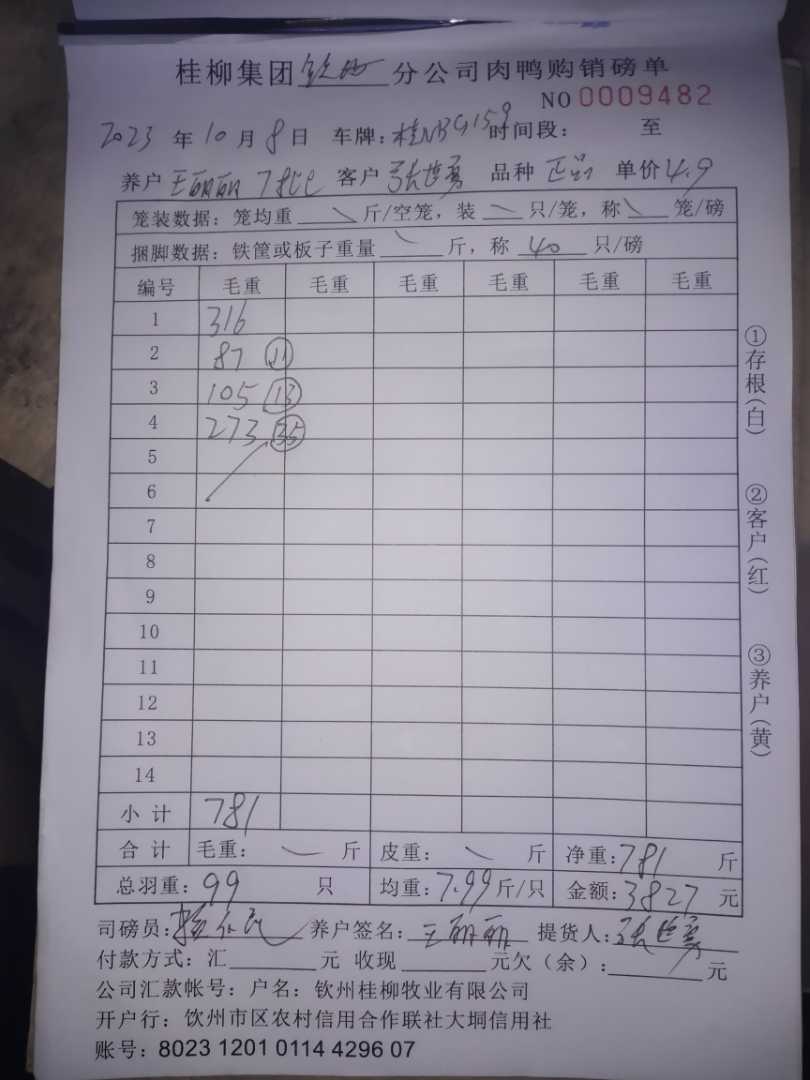 桂柳集团钦州分公司肉鸭购销磅单
NO 0009482
2023 年 10 月 8 日 车牌：桂NBG159 时间段： 至
养户 王丽丽 客户 张世勇 品种 正品 单价 4.9
笼装数据：笼均重 斤/空笼，装 只/笼，称 笼/磅
捆脚数据：铁筐或板子重量 斤，称 40 只/磅
编号 毛重 毛重 毛重 毛重 毛重 毛重
1 316
2 87 11
3 105 13
4 273 35
5
6
7
8
9
10
11
12
13
14
小计 781
合计 毛重： 斤 皮重： 斤 净重：781 斤
总羽重：99 只 均重：7.99 斤/只 金额：3827 元
司磅员： 养户签名：王丽丽 提货人：张世勇
付款方式：汇 元 收现 元欠（余）： 元
公司汇款帐号：户名：钦州桂柳牧业有限公司
开户行：钦州市区农村信用合作联社大垌信用社
账号：8023 1201 0114 4296 07
①存根（白）
②客户（红）
③养户（黄）